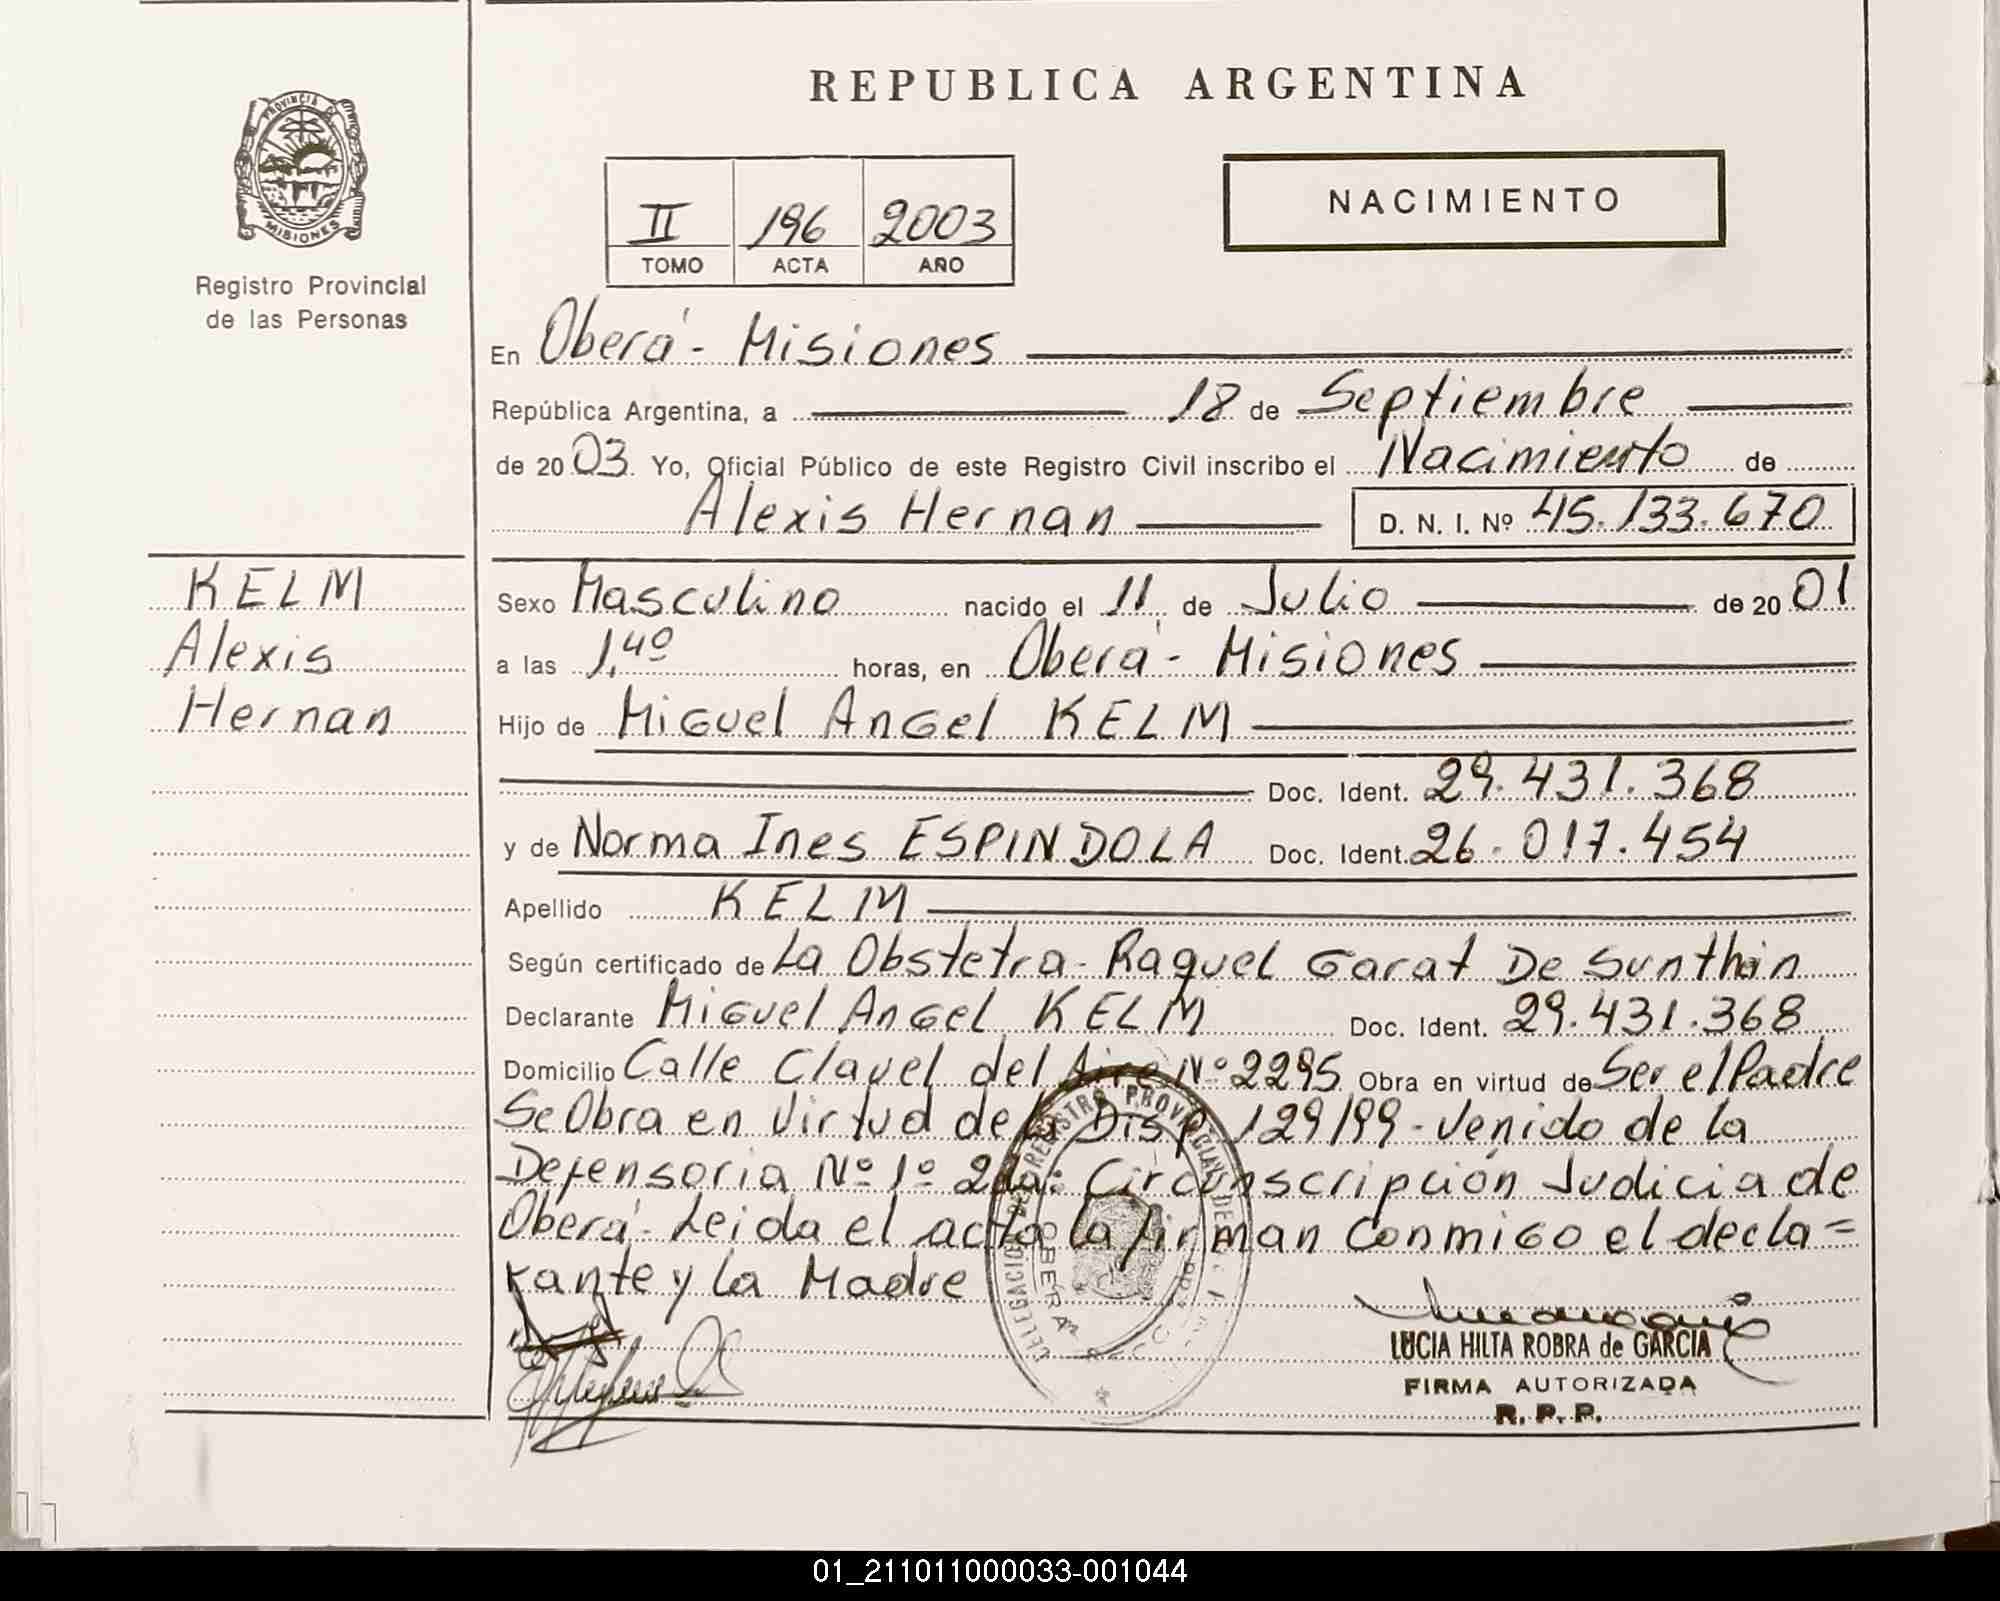 REPUBLICA ARGENTINA
PROVINCIA DE
MISIONES
Registro Provincial
de las Personas
NACIMIENTO
II 196 2003
TOMO ACTA AÑO
En Oberá - Misiones
República Argentina, a 18 de Septiembre
de 2003. Yo, Oficial Público de este Registro Civil inscribo el Nacimiento de
Alexis Hernan D. N. I. Nº 45.133.670
KELM
Alexis
Hernan
Sexo Masculino nacido el 11 de Julio de 2001
a las 1,40 horas, en Oberá - Misiones
Hijo de Miguel Angel KELM
Doc. Ident. 29.431.368
y de Norma Ines ESPINDOLA Doc. Ident. 26.017.454
Apellido KELM
Según certificado de La Obstetra - Raquel Garat De Sunthin
Declarante Miguel Angel KELM Doc. Ident. 29.431.368
Domicilio Calle Clavel del Aire Nº 2295 Obra en virtud de Ser el Padre
Se Obra en Virtud de la Disp 129/99 - Venido de la
Defensoria Nº 1º 2da: Circunscripción Judicia de
Oberá - Leida el acta la firman Conmigo el decla=
rante y la Madre
LUCIA HILTA ROBRA de GARCIA
FIRMA AUTORIZADA
R. P. P.
01_211011000033-001044